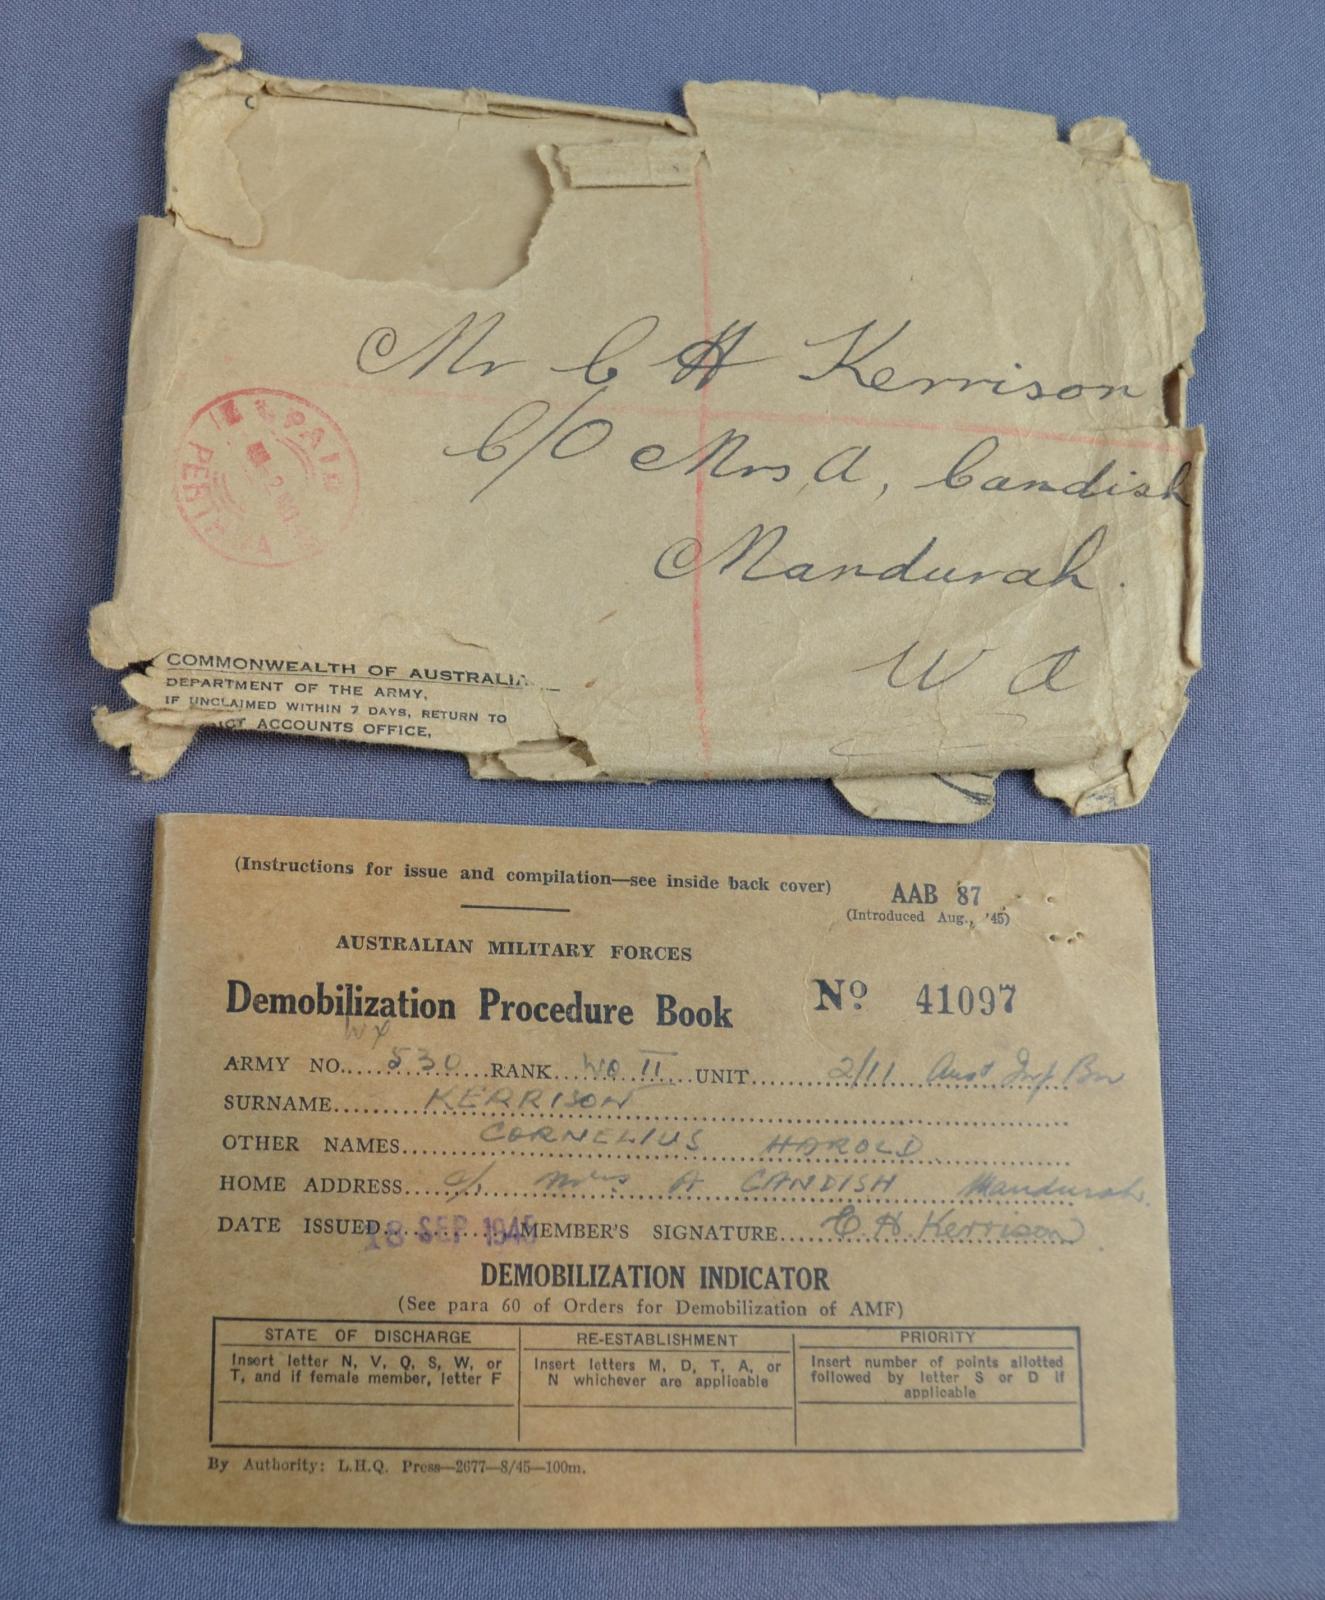 Mr C H Kerrison
C/O Mrs A, Candish
Mandurah.
W A
PAID
PERTH
COMMONWEALTH OF AUSTRALIA
DEPARTMENT OF THE ARMY,
IF UNCLAIMED WITHIN 7 DAYS, RETURN TO
ACCOUNTS OFFICE,
(Instructions for issue and compilation—see inside back cover)
AAB 87
(Introduced Aug., '45)
AUSTRALIAN MILITARY FORCES
Demobilization Procedure Book No 41097
WX
ARMY NO. 530 RANK WO II UNIT 2/11 Aust Inf Bn
SURNAME KERRISON
OTHER NAMES CORNELIUS HAROLD
HOME ADDRESS c/- Mrs A CANDISH Mandurah.
DATE ISSUED 18 SEP 1945 MEMBER'S SIGNATURE C. H. Kerrison
DEMOBILIZATION INDICATOR
(See para 60 of Orders for Demobilization of AMF)
STATE OF DISCHARGE
Insert letter N, V, Q, S, W, or
T, and if female member, letter F
RE-ESTABLISHMENT
Insert letters M, D, T, A, or
N whichever are applicable
PRIORITY
Insert number of points allotted
followed by letter S or D if
applicable
By Authority: L.H.Q. Press—2677—8/45—100m.